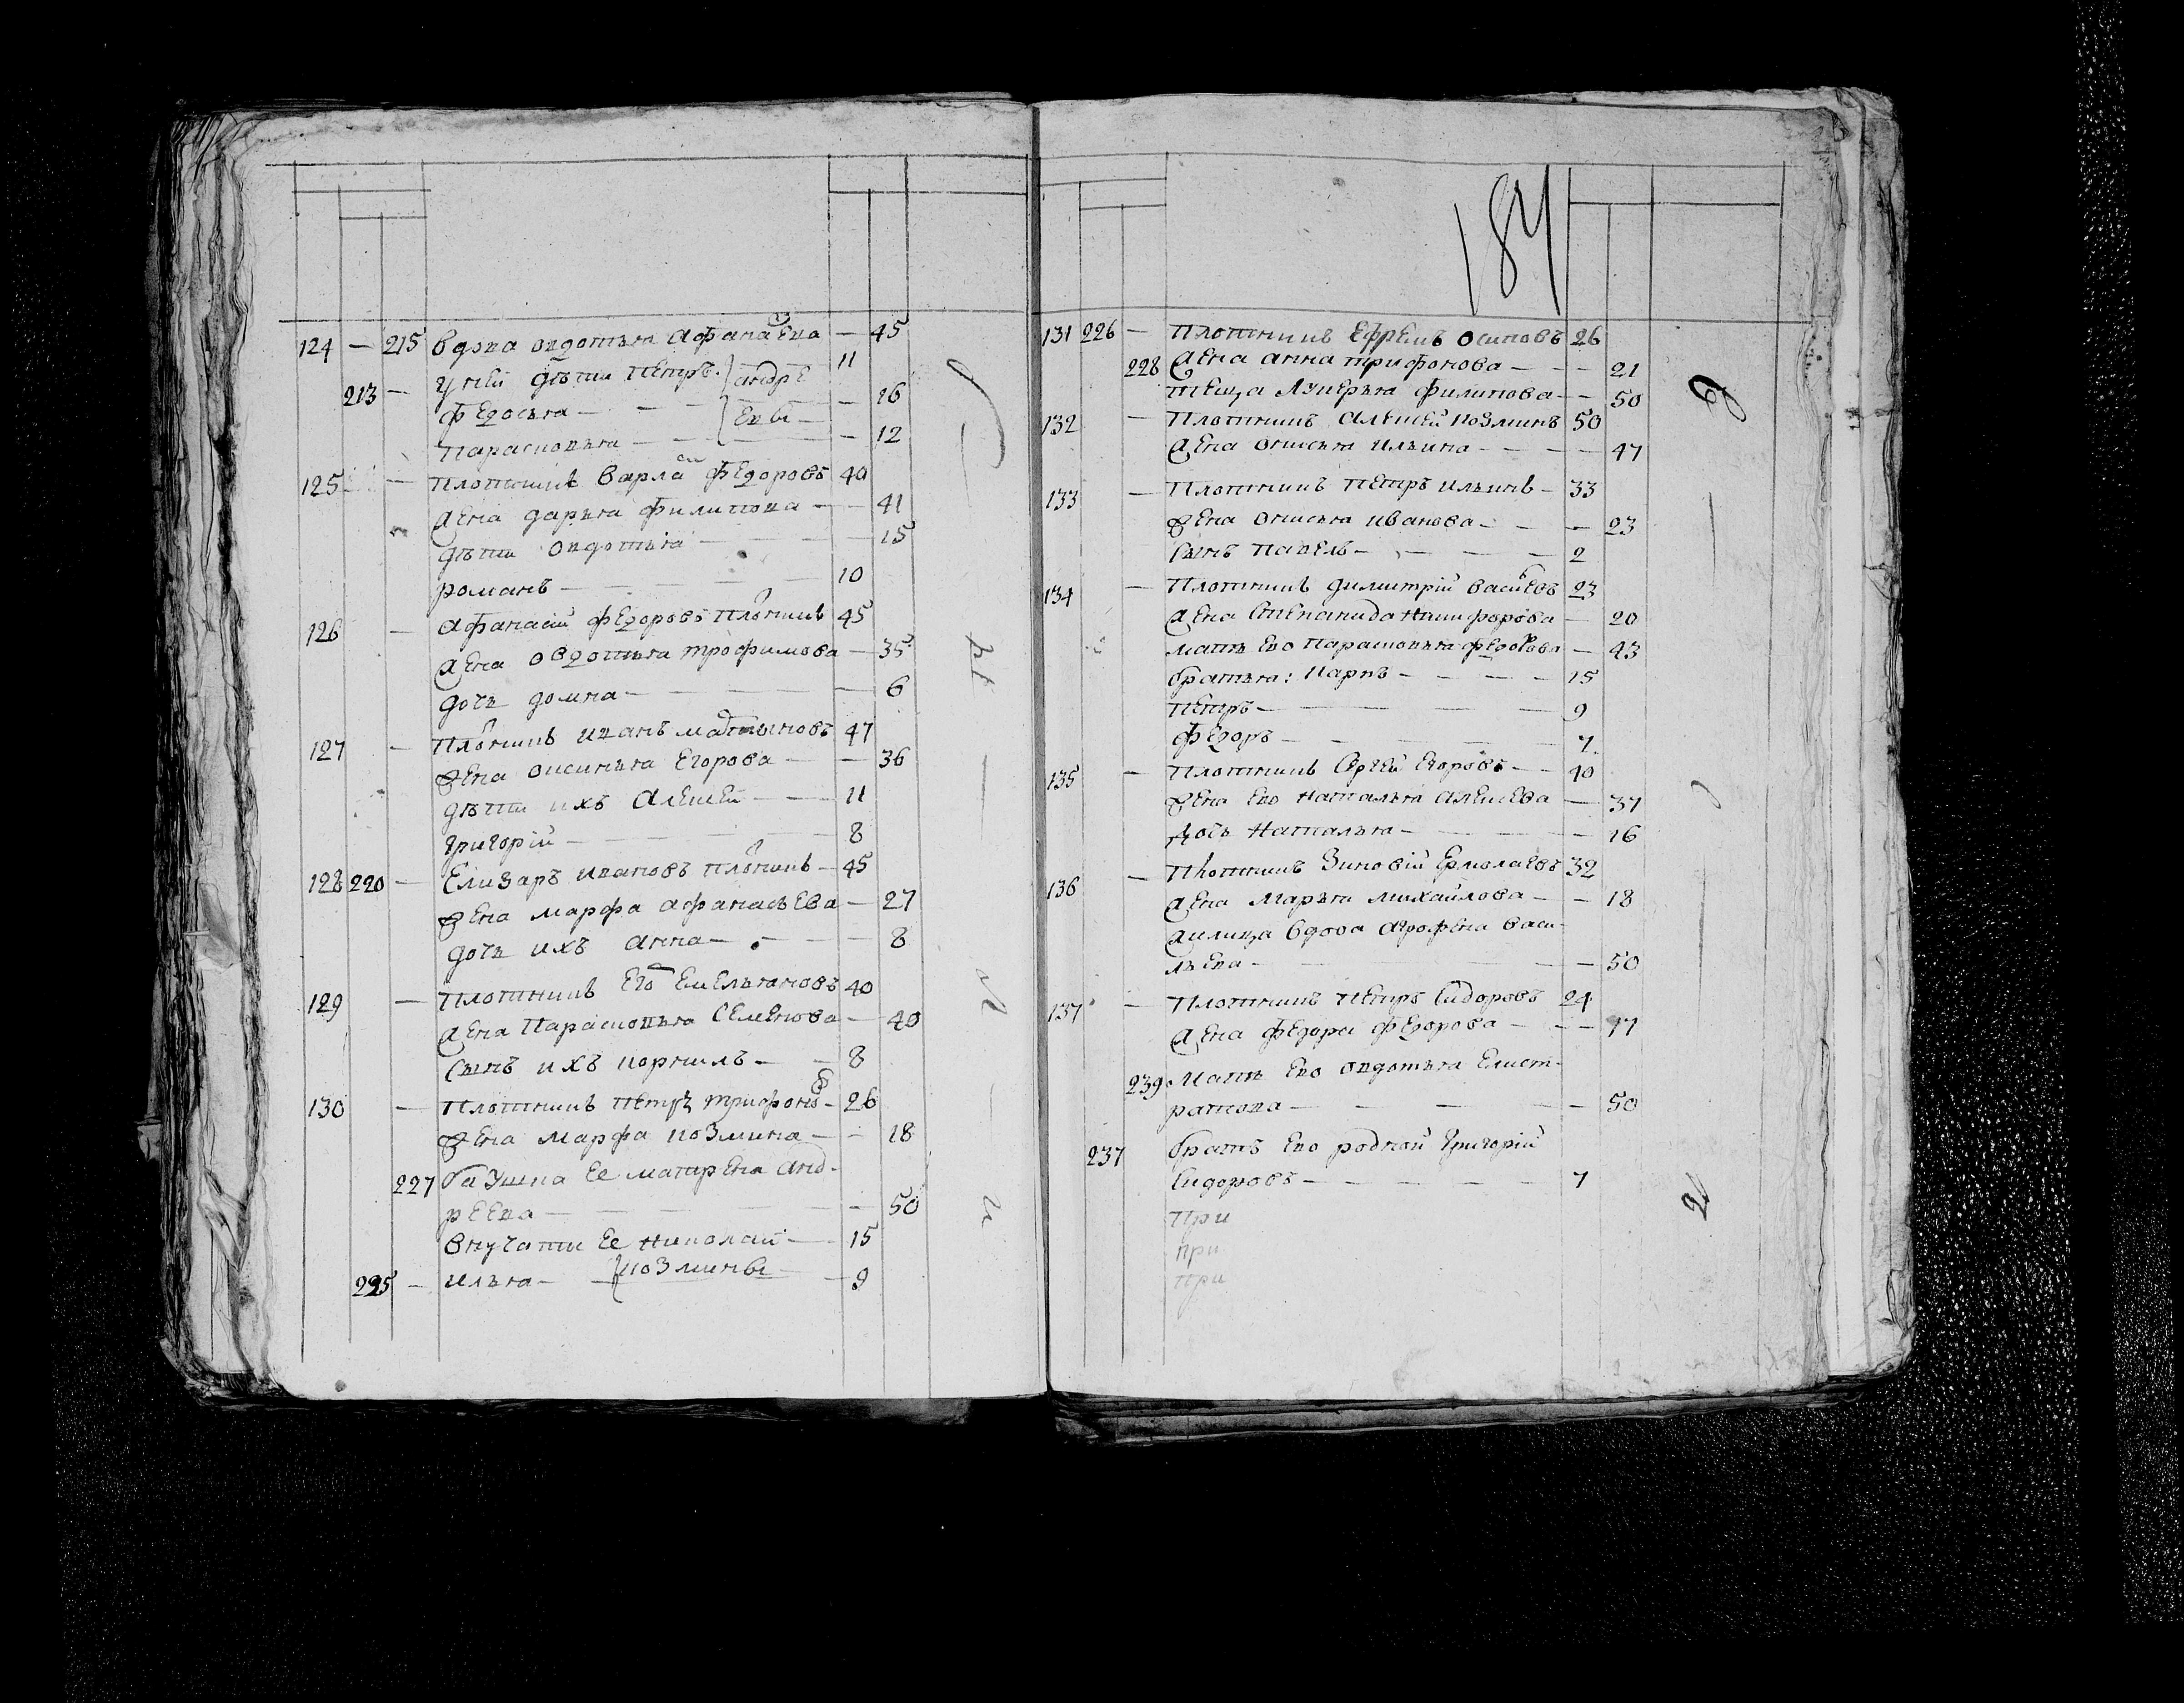 124 — 215 вдова овдотья афанасьева — 45
213 — у ней дѣти петръ } андре 11
федосья — — } евы — — 16
парасковья — — — 12
125 — плотникъ варлам федоровъ 40
жена дарья филипова — — 41
дѣти овдотья — — 15
романъ — — 10
126 — афанасий федоровъ плотникъ 45
жена овдотья трофимова — 35
дочь домна — — 6
127 — плотникъ иванъ мартыновъ 47
жена аксинья егорова — — 36
дѣти ихъ алексей — — 11
григорій — — 8
128 220 — елизаръ ивановъ плотникъ — 45
жена марфа афанасьева — 27
дочь ихъ анна — — 8
129 — плотникъ его емельяновъ 40
жена парасковья семенова — 40
сынъ ихъ корнилъ — — 8
130 — плотникъ петръ трифоновъ — 26
жена марфа козмина — — 18
227 бабушка ее матрена анд-
реева — — 50
внучати ее николай — 15
225 — илья — { козмины — 9
184
131 226 — плотникъ ефремъ осиповъ 26
228 жена анна трифонова — — 21
теща лукерья филипова — — 50
132 — плотникъ алексей козминъ 50
жена ильина — — 47
133 — плотникъ петръ ильинъ — 33
жена иванова — — 23
сынъ павелъ — — 2
134 — плотникъ димитрій васильевъ 23
жена степанида никифорова — 20
мать ево парасковья федорова — 43
братья: карпъ — — 15
петръ — — 9
федоръ — — 7
135 — плотникъ сергей егоровъ — 40
жена ево наталья алексева — 37
дочь наталья — — 16
136 — плотникъ зиновій ермолаевъ 32
жена марья михайлова — — 18
жилица вдова агрофена васи-
льева — — 50
137 — плотникъ петръ сидоровъ 24
жена федора федорова — — 17
239 мать ево овдотья елист-
ратова — — 50
237 братъ ево родной григорій
сидоровъ — — 7
при
при
при